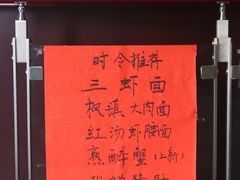 时令推荐
三虾面
枫镇大肉面
红汤虾腰面
熟醉蟹(上新)